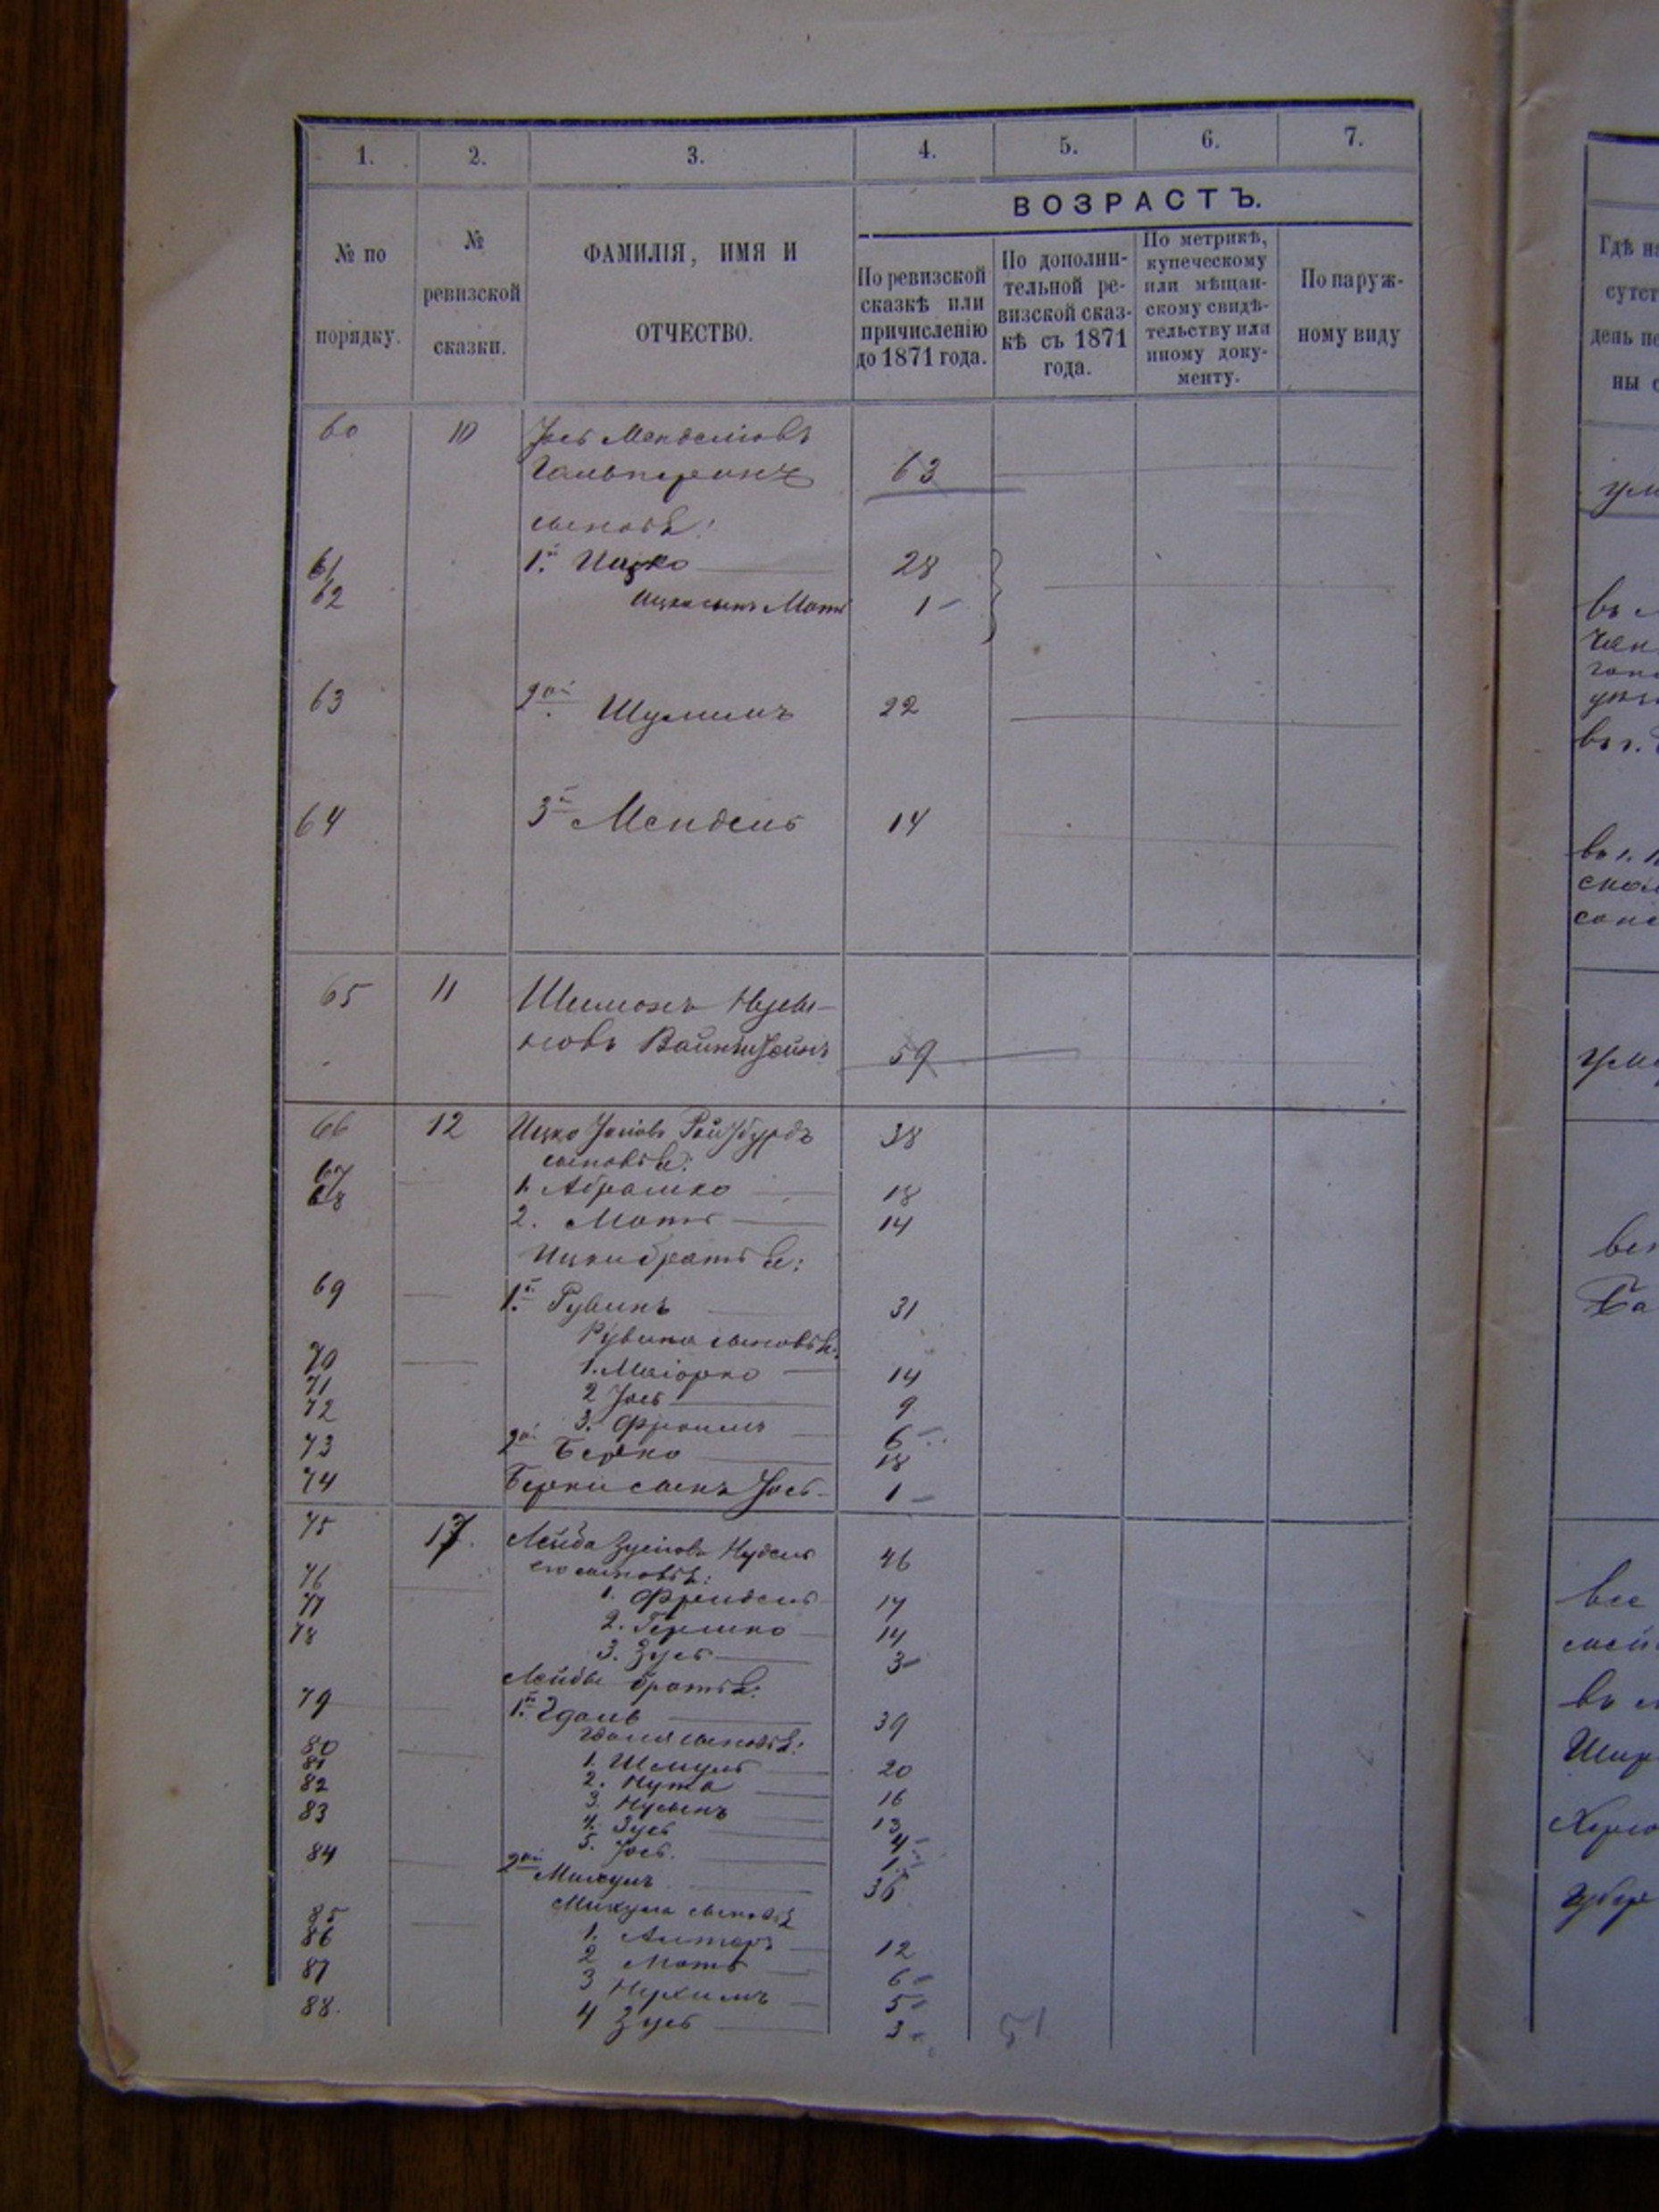 1. 2. 3. 4. 5. 6. 7.
ВОЗРАСТЪ.
№ по порядку.
№ ревизской сказки.
ФАМИЛІЯ, ИМЯ И ОТЧЕСТВО.
По ревизской сказкѣ или причисленію до 1871 года.
По дополни-
тельной ре-
визской сказ-
кѣ съ 1871
года.
По метрикѣ,
купеческому
или мѣщан-
скому свидѣ-
тельству или
иному доку-
менту.
По наруж-
ному виду
60 10 Іось Менделіовъ
Гальперинъ 63
сыновья:
61 1й Ицко 28
62 Ицка сынъ Мать 1
63 2ой Шулимъ 22
64 3й Мендель 14
65 11 Шимонъ Нусы-
новъ 59
66 12 Ицко Іосіовъ Ройзбурдъ 38
сыновья:
67 1. Абрамко 18
68 2. Мать 14
Ицки братья:
69 1й Рувинъ 31
Рувина сыновья:
70 1. Маіорко 14
71 2 Іось 9
72 3. Фроимъ 6
73 2ой Берко 18
74 Берки сынъ Іось 1
75 17. Лейба Зусіовъ Нудель 46
его сыновья:
76 1. Фридель 17
77 2. Гершко 14
78 3. Зусь 3
Лейбы братья:
79 1й Гдаль 39
Гдаля сыновья:
80 1. Шмуль 20
81 2. Нута 16
82 3. Нусынъ 13
83 4. Зусь 4
5. Іось. 1
84 2ой Михуль 36
Михуля сыновья
85 1. Алтеръ 12
86 2 Мать 6
87 3 Нухимъ 5
88. 4 Зусь 3
51
Гдѣ на
сутст
день по
ны с